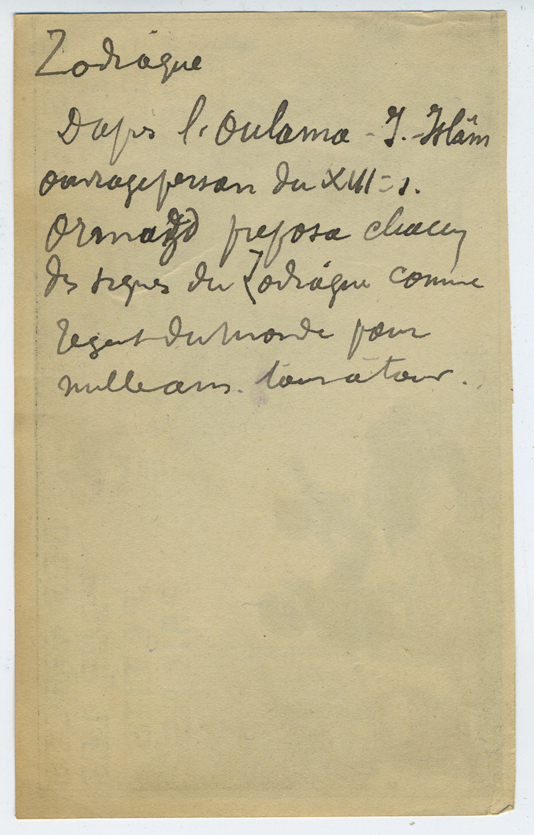 Zodiaque
Daprs l'Oulama-I-Islâm
ouvrage persan du XIII= s.
Ormazd preposa chacun
des signes du Zodiaque comme
regent du monde pour
mille ans tour à tour.